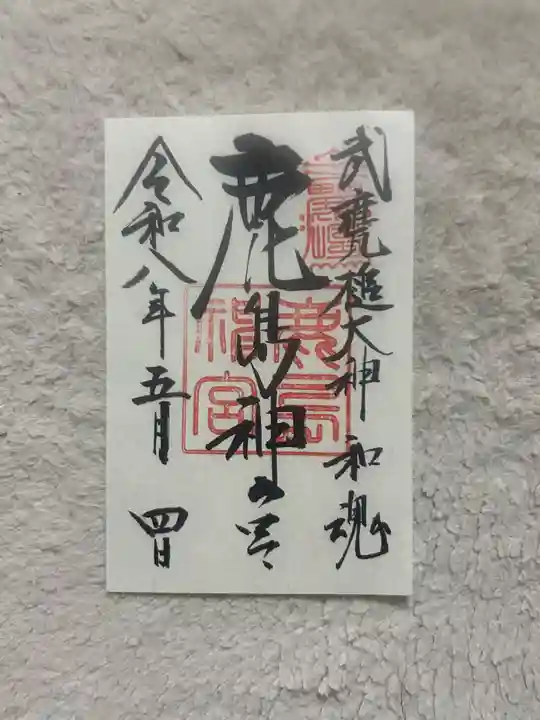 武甕槌大神 和魂
鹿島神宮
令和八年五月 四日
鹿島神宮